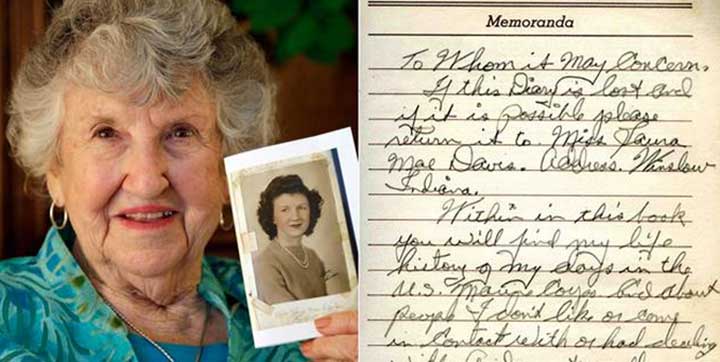 Memoranda
To Whom it May Concern,
If this Diary is lost and
if it is possible please
return it to. Miss Laura
Mae Davis. Address. Winslow
Indiana.
Within in this book
you will find my life
history of my days in the
U.S. Marine Corps. And about
people I don't like or come
in contact with or had dealing